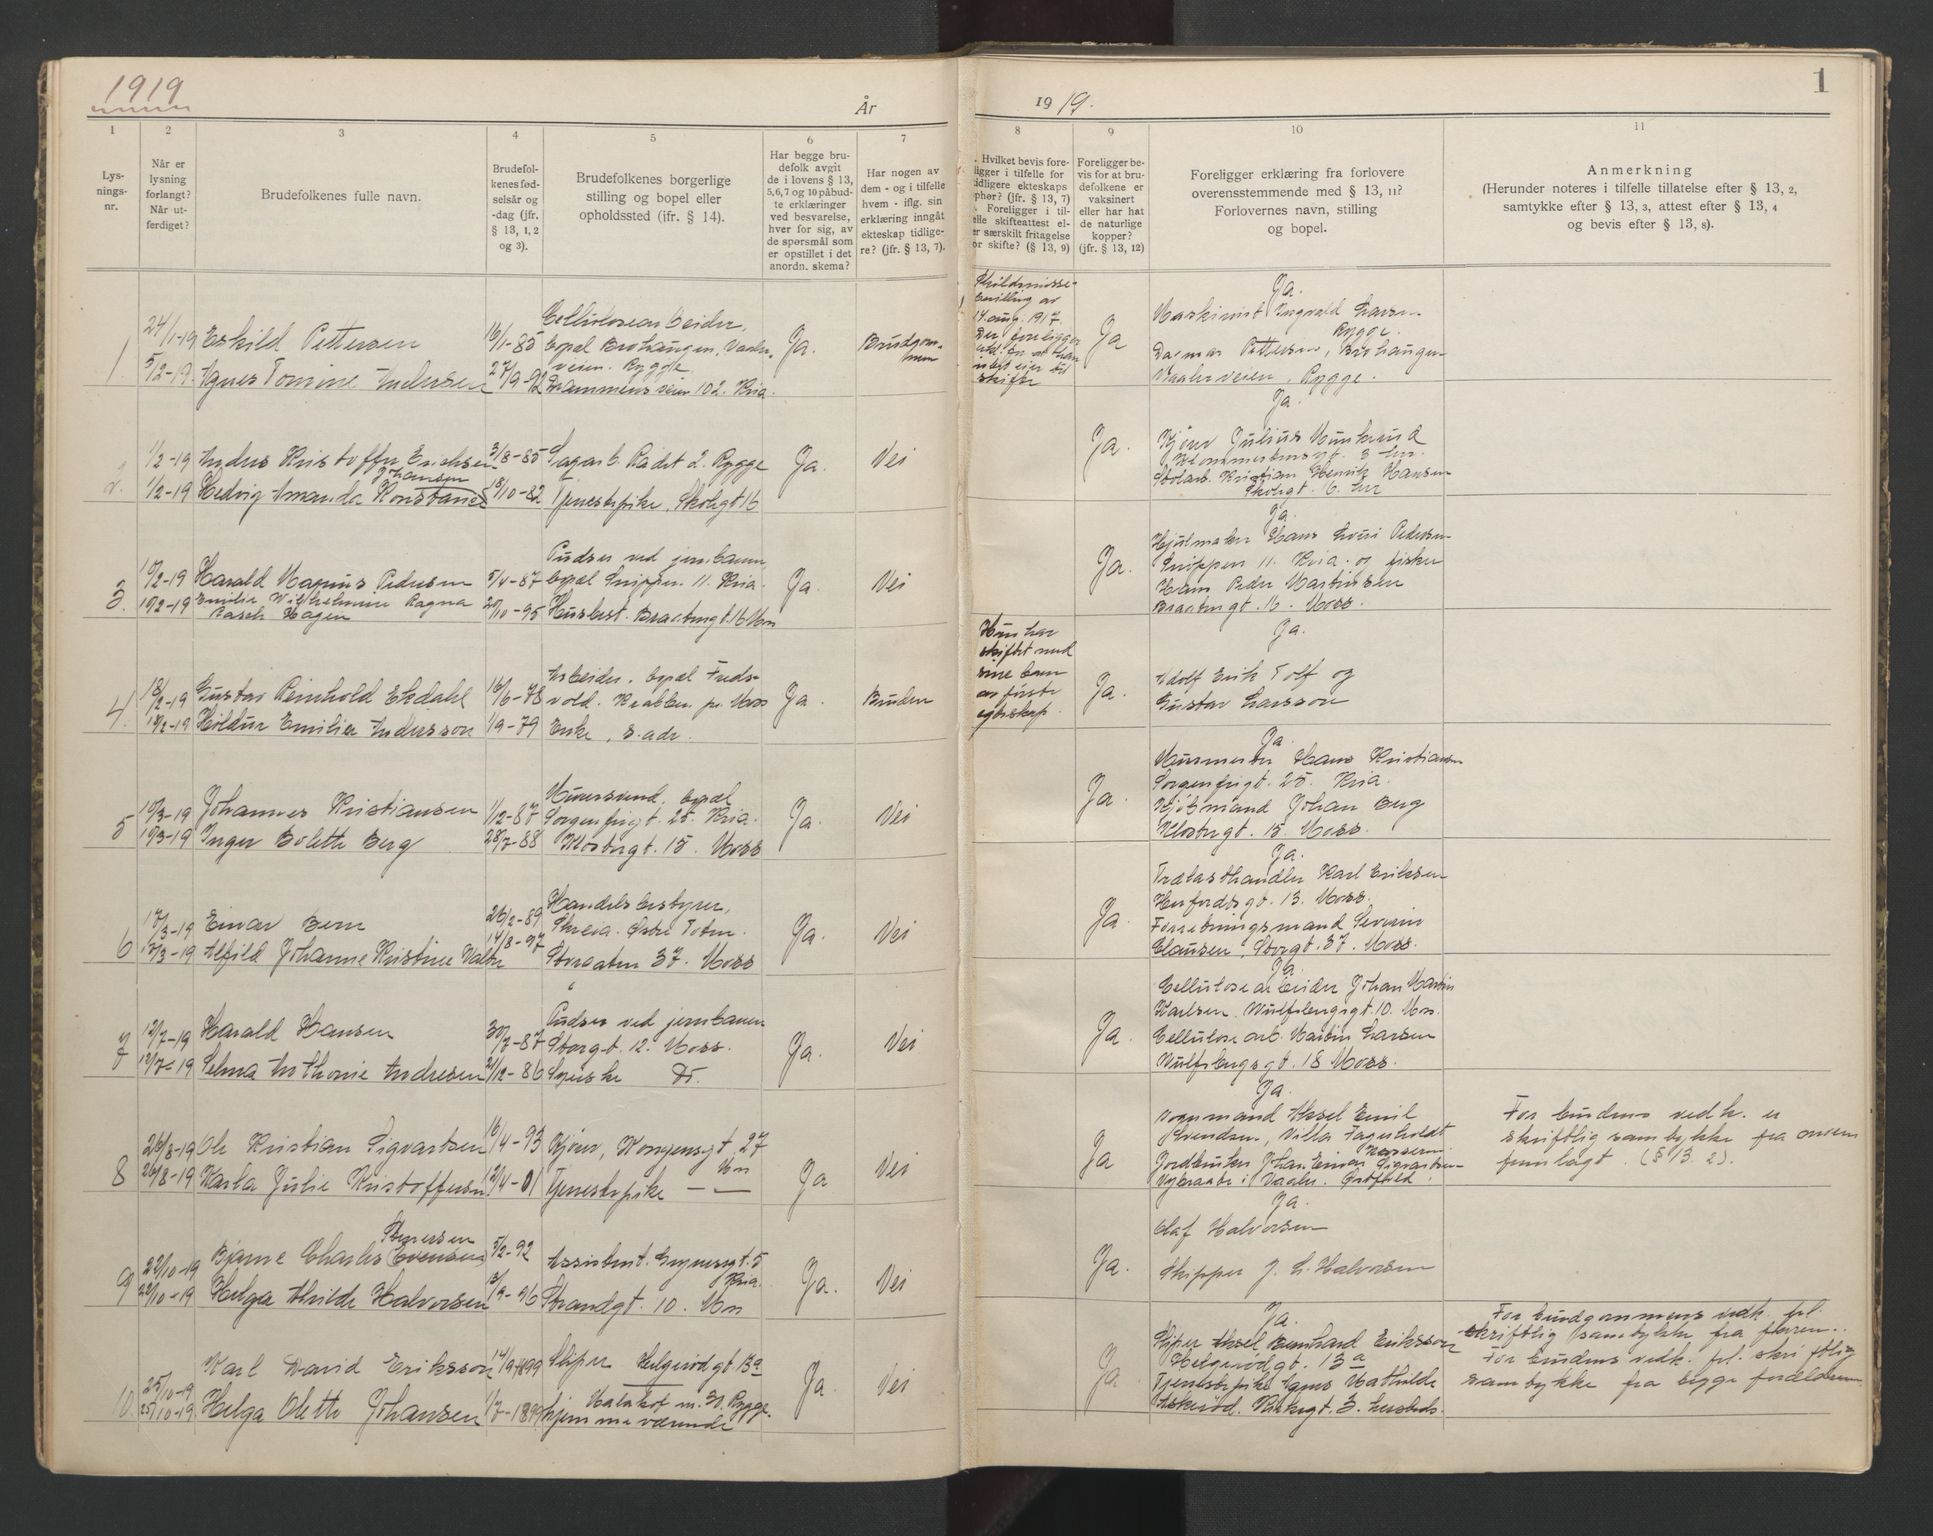 1919
År
1 2 3 4 5 6 7
Lys-
nings-
nr.
Når er
lysning
forlangt?
Når ut-
ferdiget?
Brudefolkenes fulle navn.
Brudefol-
kenes fød-
selsår og
-dag (jfr.
§ 13, 1, 2
og 3).
Brudefolkenes borgerlige
stilling og bopel eller
opholdssted (jfr. § 14).
Har begge bru-
defolk avgit
de i lovens § 13,
5,6,7 og 10 påbud-
te erklæringer
ved besvarelse,
hver for sig, av
de spørsmål som
er opstillet i det
anordn. skema?
Har nogen av
dem - og i tilfelle
hvem - iflg. sin
erklæring inngått
ekteskap tidlige-
re? (jfr. § 13, 7).
1
24/1-19 Eskild Pettersen 16/1-85
5/2-19. Agnes Tomine Andersen 27/9-92
Cellulosearbeider,
bopæl Brohaugen, Vaaler-
veien. Rygge
Drammensveien 102. Kria.
Ja.
Brudgom-
men
2.
1/2-19 Anders Kristoffer Erichsen 3/8-85 Sagarb. Radet 2. Rygge
Johansen
1/2-19 Hedvig Amanda Konstance 18/10-82 Tjenestepike, Skolegt 16
Ja.
Nei
3.
10/2-19 Harald Magnus Pedersen 5/4-87
10/2-19 Emilie Wilhelmine Ragna
Rasch Hagen 20/10-95
Pudser ved jernbanen
bopæl Snippen 11. Kria.
Husbest. Braatengt. 16 Mss
Ja.
Nei
4.
18/2-19 Gustav Reinhold Ekdahl 16/6-78
18/2-19 Hildur Emilier Andersson 1/9-79
Arbeider. bopæl Freds-
vold. Krabben pr. Moss
Enke, s. adr.
Ja.
Bruden
5
10/3-19 Johannes Kristiansen 1/12-87
10/3-19 Inger Bolette Berg 28/7-88
Murersvend, bopæl
Sorgenfrigt. 25. Kria.
Klostergt. 15. Moss
Ja.
Nei
6
17/3-19 Einar Bern 26/2-89
17/3-19 Alfild Johanne Kristine Valter 14/8-97
Handelsbestyrer,
Skreia. Østre Toten.
Storgaten 37. Moss
Ja.
Nei
7
12/7-19 Harald Hansen 30/7-87
12/7-19 Selma Anthonie Andresen 21/12-86
Pudser ved jernbanen
Storgt. 12. Moss.
Syerske Do.
Ja.
Nei
8
26/8-19 Ole Kristian Sigvartsen 16/4-93 Kjører, Kongensgt. 27
Mss
26/8-19 Karla Julie Kristoffersen 12/4-01 Tjenestepike — —
Ja
Nei
9
Syversen
22/10-19 Bjarne Charles Evensen 5/2-92 Assistent.
Kria.
22/10-19 Helga Alvilde Halvorsen 13/9-96 Strandgt. 10. Mss
Ja.
Nei
10.
25/10-19 Karl David Eriksson 14/9-1899 Sliper Helgerødgt 13a
25/10-19 Helga Olette Johansen 1/7-1899 Malakof m. 30. Rygge.
hjemmeværende
Ja.
Nei
1
1919.
8 9 10 11
. Hvilket bevis fore-
ligger i tilfelle for
tidligere ekteskaps
ophør? (jfr. § 13, 7)
. Foreligger i til-
elle skifteattest el-
er særskilt fritagelse
or skifte? (§ 13, 9)
Foreligger be-
vis for at bru-
defolkene er
vaksinert
eller har hat
de naturlige
kopper?
(jfr. § 13, 12)
Foreligger erklæring fra forlovere
overensstemmende med § 13, 11?
Forlovernes navn, stilling
og bopel.
Anmerkning
(Herunder noteres i tilfelle tillatelse efter § 13, 2,
samtykke efter § 13, 3, attest efter § 13, 4
og bevis efter § 13, 8).
Skilsmisse-
bevilling av
14. aug. 1917.
Der foreligger
erkl. om at han
intet eier til
skifte
Ja
Ja.
Maskinist Ingvald Larsen
Rygge.
Dagmar Pettersen, Brohaugen
Vaalerveien, Rygge.
Ja.
Ja.
Kjører Julius Munkerud
3 her.
Stolarb. Kristian Henrik Hansen
Skolegt. 16. her
Ja.
Ja
Hjulmaker Hans Lauri Pedersen
Snippen 11. Kria. og fisker
Hans Peder Martinsen
Braatengt. 16. Moss.
Hun har
skiftet med
sine barn
av første
egteskap.
Ja.
Ja.
Adolf Erik Tolf og
Gustav Larsson
Ja.
Ja.
Murmester Hans Kristiansen
Sorgenfrigt. 25. Kria.
Kjøbmand Johan Berg
Klostergt. 15. Moss.
Ja.
Ja.
Trælasthandler Karl Eriksen
Herfordsgt. 13. Moss.
Forretningsmand Severin
Clausen, Storgt. 37. Moss.
Ja
Ja.
Cellulosearbeider Johan Martin
Karlsen. Wulfsbergsgt. 10. Mss.
Cellulosearb. Martin Larsen
Wulfsbergsgt. 18 Moss.
Ja
Ja.
Vognmand Aksel Emil
Svendsen, Villa Fagerholdt
Jordbruker Johan Einar Sigvartsen
i Vaaler. Østfold.
For brudens vedk. er
skriftlig samtykke fra
fremlagt. (§ 13. 2).
Ja.
Ja.
Olaf Halvorsen
Skipper J. L. Halvorsen
Ja
Ja.
Sliper Aksel Bernhard Eriksson
Helgerødgt. 13a
Tjenestepike Agnes Mathilde
Askerød. Kirkegt. 3. hersteds.
For brudgommens vedk. frl.
skriftlig samtykke fra faren..
For brudens vedk. frl. skriftlig
samtykke fra begge forældrene